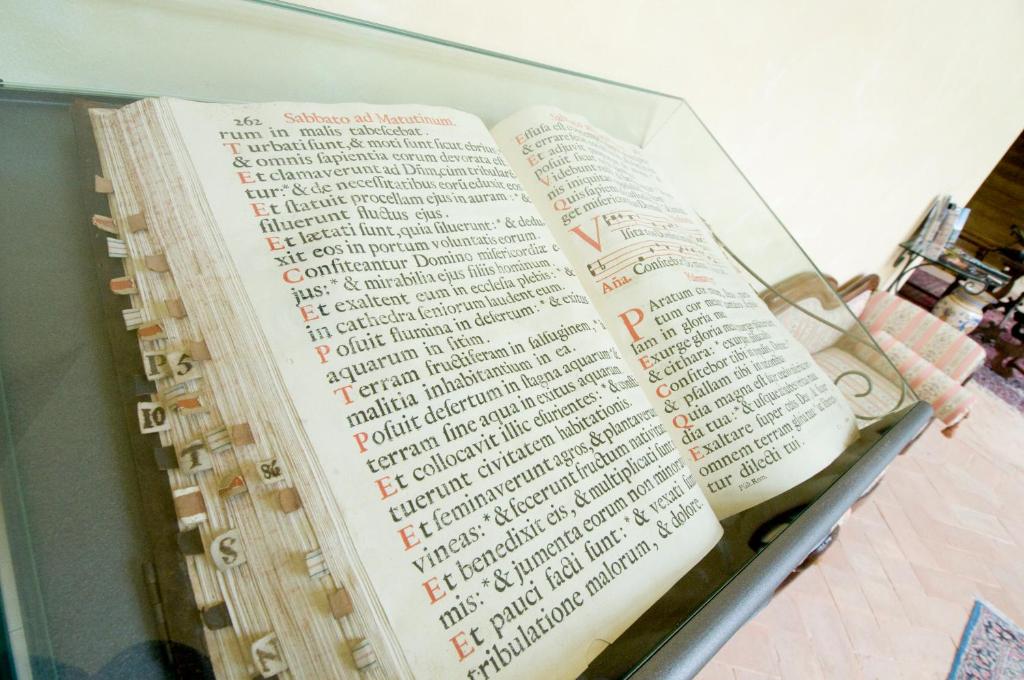 262 Sabbato ad Matutinum.
rum in malis tabeſcebat.
Turbati ſunt, & moti ſunt ſicut ebrius:
& omnis ſapientia eorum devorata eſt
Et clamaverunt ad Dñm, cùm tribularen
tur: * & de neceſſitatibus eorũ eduxit eos
Et ſtatuit procellam ejus in auram: * &
ſiluerunt fluctus ejus.
Et lætati ſunt, quia ſiluerunt: * & dedu
xit eos in portum voluntatis eorum.
Confiteantur Domino miſericordiæ e
jus: * & mirabilia ejus filiis hominum
Et exaltent eum in eccleſia plebis: * &
in cathedra ſeniorum laudent eum.
Poſuit flumina in deſertum: * & exitus
aquarum in ſitim.
Terram fructiferam in ſalſuginem, *
malitia inhabitantium in ea.
Poſuit deſertum in ſtagna aquarum: *
terram ſine aqua in exitus aquarum.
Et collocavit illic eſurientes: * & conſti
tuerunt civitatem habitationis.
Et ſeminaverunt agros, & plantaverunt
vineas: * & fecerunt fructum nativita
Et benedixit eis, & multiplicati ſunt
mis: * & jumenta eorum non minora
Et pauci facti ſunt: * & vexati ſunt
tribulatione malorum, & dolore
Effuſa eſt
& errare
Et adjuvit
poſuit ſicut
Videbunt
nis iniquitas
Quis ſapiens
get miſericordias
Viſita
Aña. Confitebor
Paratum cor
tum cor meum
lam in gloria mea.
Exurge gloria mea
& cithara: * exurgam
Confitebor tibi in populis
& pſallam tibi in nationibus
Quia magna eſt ſuper
dia tua: * & uſque
Exaltare ſuper cœlos Deus
omnem terram gloria tua: ut liberen
tur dilecti tui.
Pſal. Rom.
P
5
10
T
&
S
Z